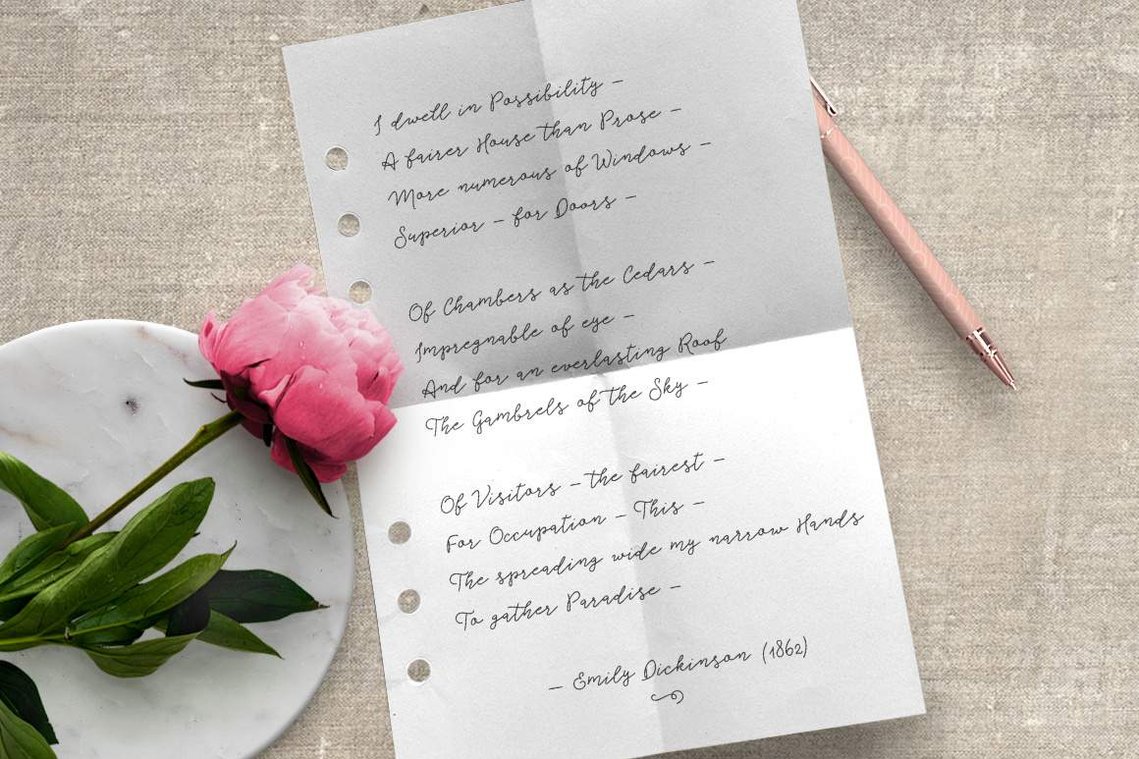 I dwell in Possibility –
A fairer House than Prose –
More numerous of Windows –
Superior – for Doors –
Of Chambers as the Cedars –
Impregnable of eye –
And for an everlasting Roof
The Gambrels of the Sky –
Of Visitors – the fairest –
For Occupation – This –
The spreading wide my narrow Hands
To gather Paradise –
– Emily Dickinson (1862)